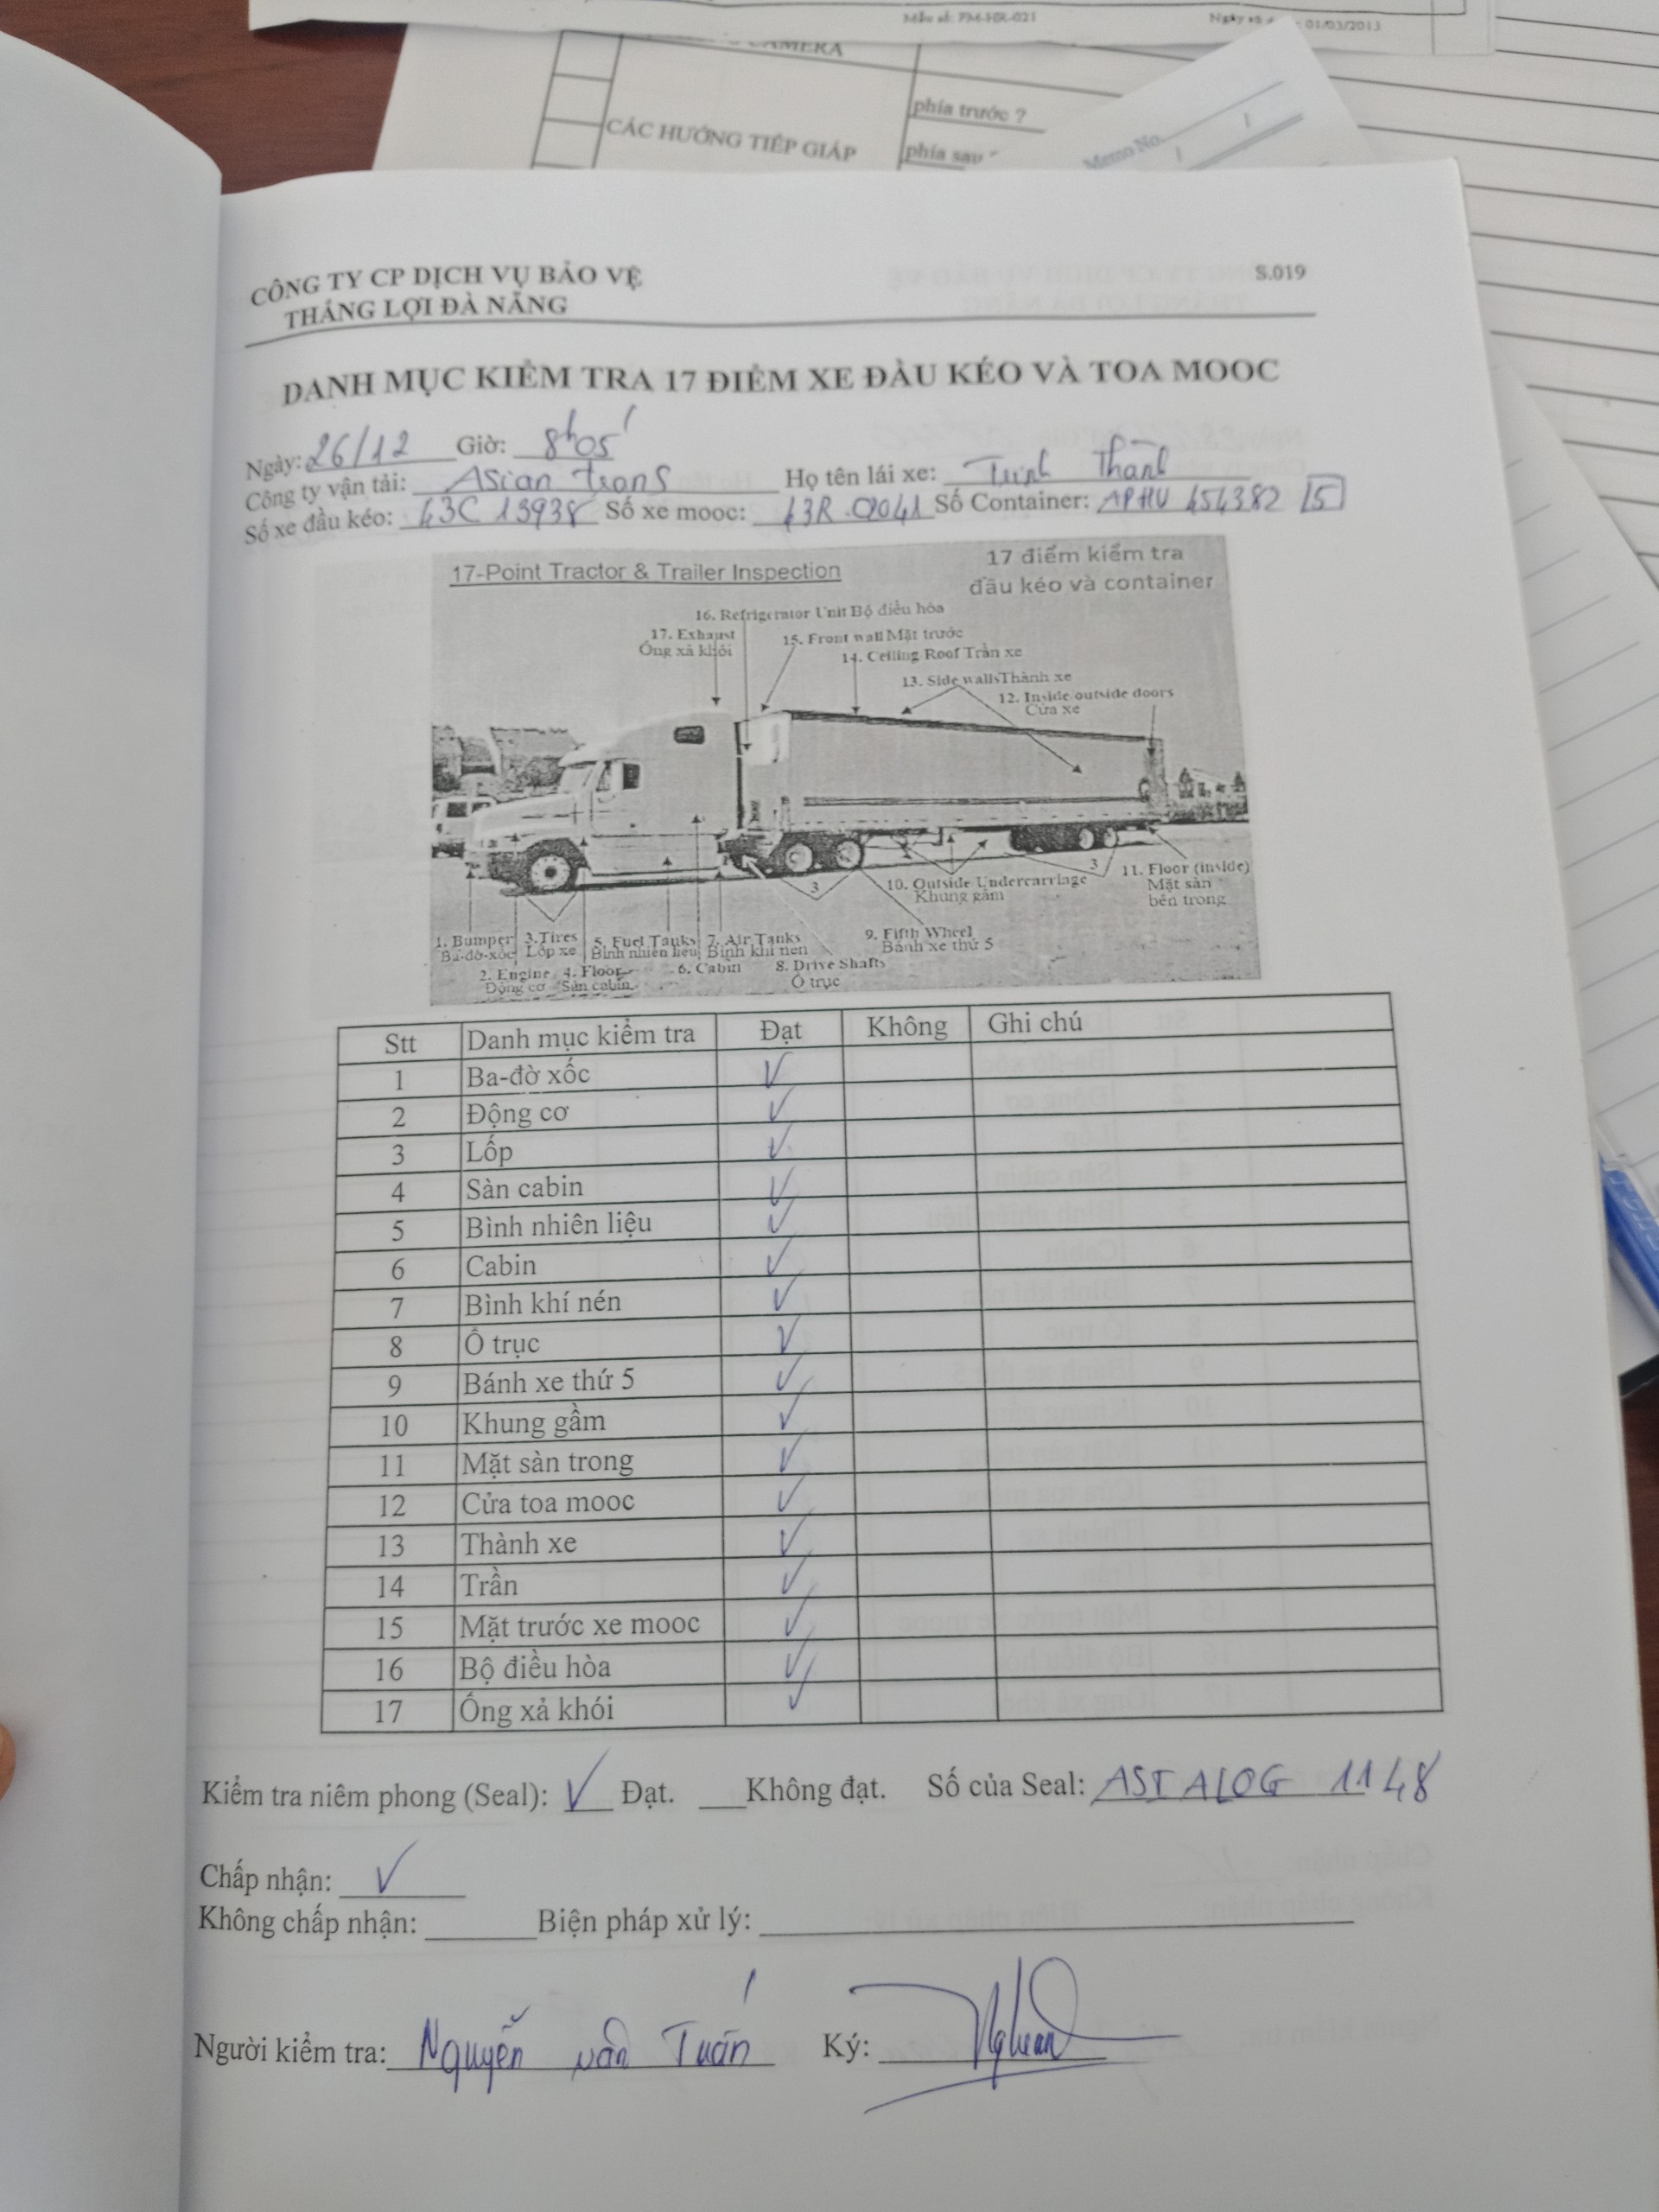 Mẫu số: FM-HR-021
01/03/2013
CAMERA
CÁC HƯỚNG TIẾP GIÁP
phía trước ?
phía sau
Memo No.
CÔNG TY CP DỊCH VỤ BẢO VỆ
THẮNG LỢI ĐÀ NẴNG
S.019
DANH MỤC KIỂM TRA 17 ĐIỂM XE ĐẦU KÉO VÀ TOA MOOC
Ngày: 26/12 Giờ: 8h05'
Công ty vận tải: Asian trans Họ tên lái xe: Trinh Thành
Số xe đầu kéo: 43C 13938 Số xe mooc: 43R Số Container: APHU 454382 5
17-Point Tractor & Trailer Inspection
17 điểm kiểm tra
đầu kéo và container
16. Refrigerator Unit Bộ điều hòa
17. Exhaust
Ống xả khói
15. Front wall Mặt trước
14. Ceiling Roof Trần xe
13. Side walls Thành xe
12. Inside outside doors
Cửa xe
3
3
10. Outside Undercarriage
Khung gầm
11. Floor (inside)
Mặt sàn
bên trong
1. Bumper
Ba-đờ-xốc
3.Tires
Lốp xe
5. Fuel Tanks
Bình nhiên liệu
7. Air Tanks
Bình khí nén
9. Fifth Wheel
Bánh xe thứ 5
2. Engine
Động cơ
4. Floor
Sàn cabin
6. Cabin
8. Drive Shafts
Ổ trục
Stt Danh mục kiểm tra Đạt Không Ghi chú
1 Ba-đờ xốc ✓
2 Động cơ ✓
3 Lốp ✓
4 Sàn cabin ✓
5 Bình nhiên liệu ✓
6 Cabin ✓
7 Bình khí nén ✓
8 Ổ trục ✓
9 Bánh xe thứ 5 ✓
10 Khung gầm ✓
11 Mặt sàn trong ✓
12 Cửa toa mooc ✓
13 Thành xe ✓
14 Trần ✓
15 Mặt trước xe mooc ✓
16 Bộ điều hòa ✓
17 Ống xả khói ✓
Kiểm tra niêm phong (Seal): ✓ Đạt. ___Không đạt. Số của Seal: ASIALOG 1148
Chấp nhận: ✓
Không chấp nhận: ________Biện pháp xử lý:
Người kiểm tra: Nguyễn văn Tuấn Ký: